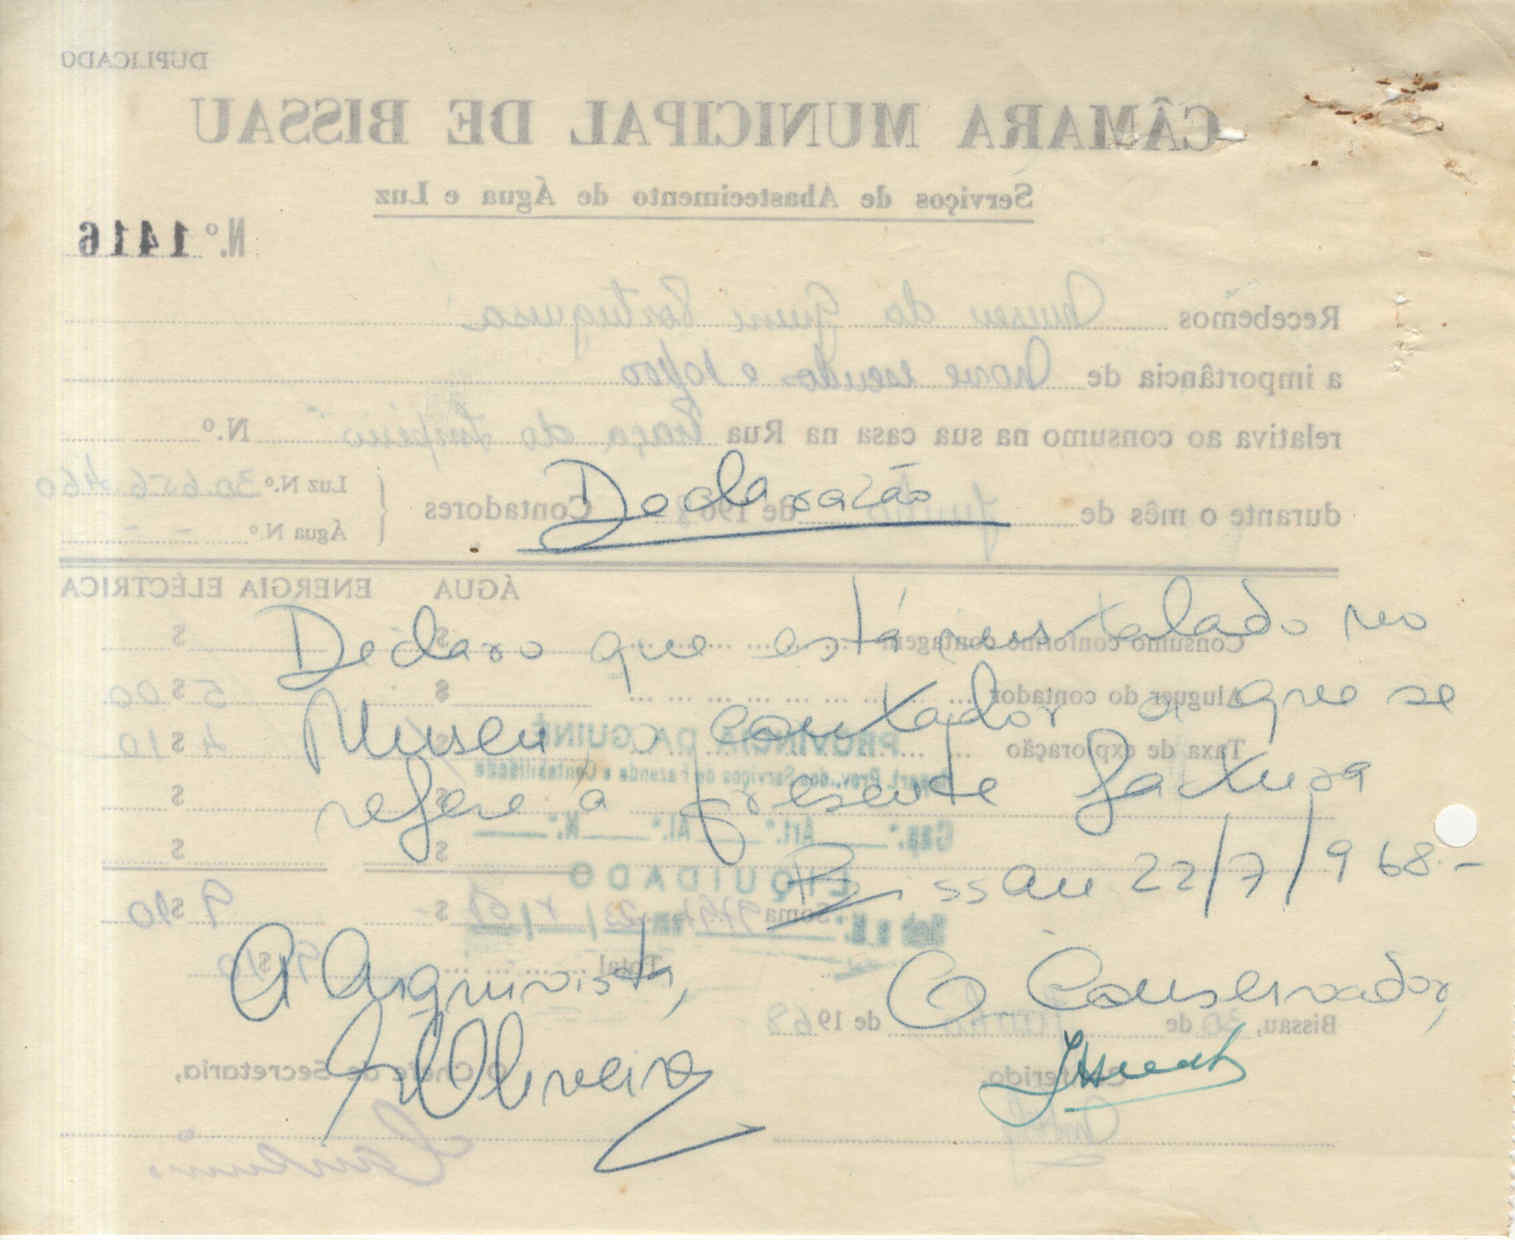 DUPLICADO
CÂMARA MUNICIPAL DE BISSAU
Serviços de Abastecimento de Água e Luz
N.º 1416
Recebemos Museu da Guiné Portuguesa
a importância de Nove escudos e 10/
relativa ao consumo na sua casa na Rua Praça do Império" N.º
durante o mês de de 196 Contadores Luz N.º 30.656.460
Água N.º - -
Declaração
ÁGUA ENERGIA ELÉCTRICA
Consumo conforme contagem $ $
Aluguer do contador $ 5$00
Taxa de exploração $ 4$10
Declaro que está instalado no
Museu, o contador a que se
refere a presente factura
Bissau 22/7/968.-
PROVÍNCIA DA GUINÉ
Repart. Prov. dos Serviços de Fazenda e Contabilidade
Cap.º Art.º Al.ª N.º
LIQUIDADO
Sob o N.º em
Soma $ 9$10
Total 9$10
A Arquivista,
O Conservador,
Bissau, 30 de de 1968
O Chefe da Secretaria,
Oliveira